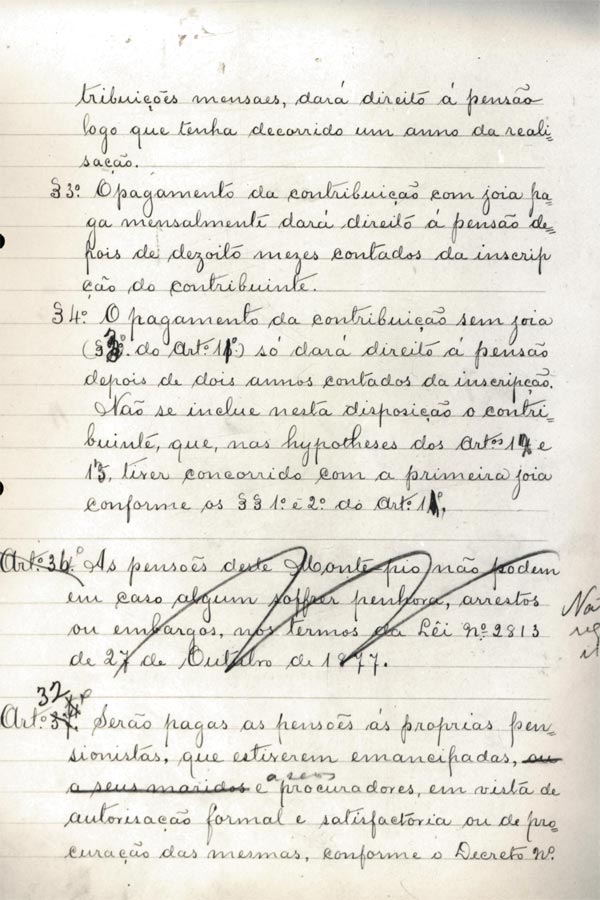 tribuições mensaes, dará direito á pensão
logo que tenha decorrido um anno da reali=
sação.
§3º. O pagamento da contribuição com joia pa=
ga mensalmente dará direito á pensão de=
pois de dezoito mezes contados da inscrip
ção do contribuinte.
§4º. O pagamento da contribuição sem joia
(§3º. do Art.º 11º) só dará direito á pensão
depois de dois annos contados da inscripção.
Não se inclue nesta disposição o contri=
buinte, que, nas hypotheses dos Artos 1 e
13, tiver concorrido com a primeira joia
conforme os §§ 1º. e 2º. do Art.º 11º,
Art.º 36.º As pensoẽs deste Monte-pio não podem
em caso algum soffrer penhora, arrestos
ou embargos, nos termos da Lêi Nº 2813
de 27 de Outubro de 1877.
32
Art.º Serão pagas as pensoẽs ás proprias pen=
sionistas, que estiverem emancipadas, ou
a seus maridos e a seus procuradores, em vista de
autorisação formal e satisfactoria ou de pro=
curação das mesmas, conforme o Decreto Nº.